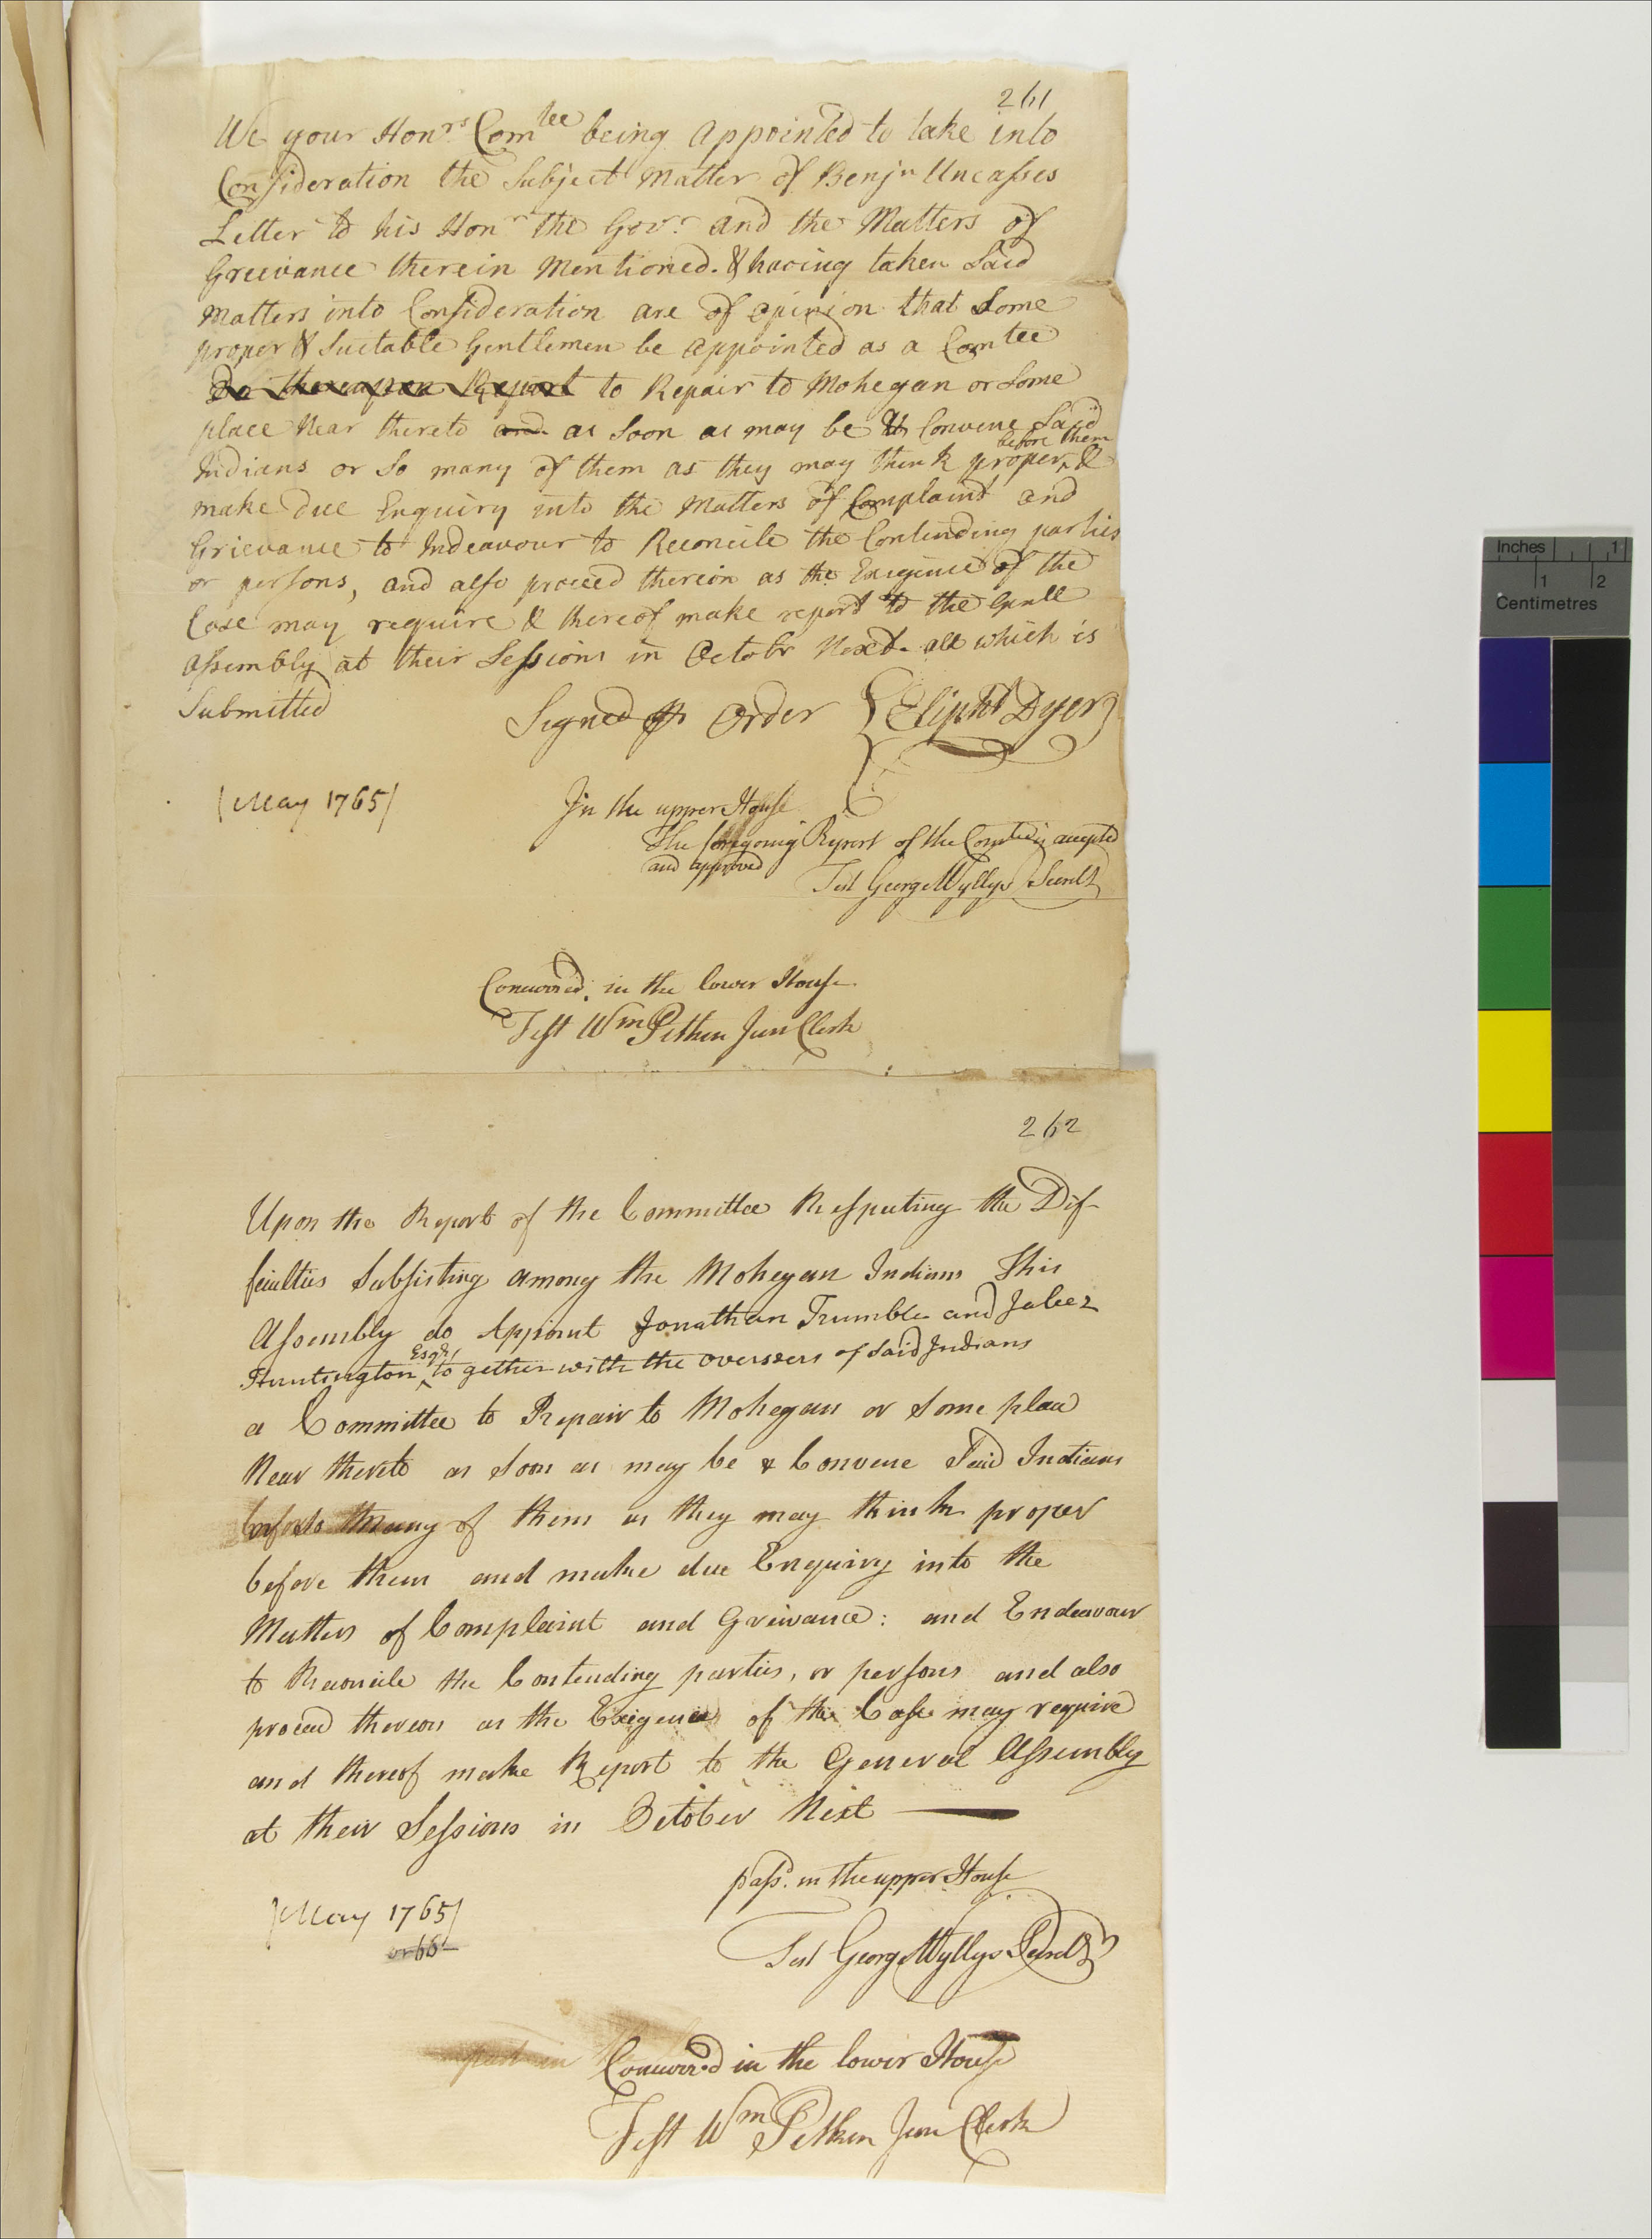 261
We your Honrs Comtee being appointed to take into
Consideration the Subject Matter of Benjn Uncasses
Letter to his Honr the Govr and the Matters of
Greevance therein Mentioned. & having taken Said
Matters into Consideration are of opinion that Some
proper & Suitable Gentlemen be appointed as a Comtee
to Repair to Mohegan or Some
place Near thereto and as Soon as may be & Convene Said
before them
Indians or So many of them as they may think proper, &
make due Enquiry into the Matters of Complaint and
Grievance to Indeavour to Reconcile the Contending parties
or persons, and also proceed therein as the Exigence of the
Case may require & thereof make report to the Genll
assembly at their Sessions in Octobr Next. all which is
Submitted
Signed pr Order Elipht Dyer
(May 1765)
In the upper House
The foregoing Report of the Comtee is accepted
and approved
Test George Wyllys Secrety
Concurrd, in the lower House
Test Wm Pitkin Junr Clerk
262
Upon the Report of the Committee Respecting the Dif-
ficulties Subsisting among the Mohegan Indians This
Assembly do Appoint Jonathan Trumble and Jabez
Esqrs
Huntington together with the overseers of said Indians
a Committee to Repair to Mohegan or Some place
Near thereto as Soon as may be & Convene Said Indians
or so Many of them as they may think proper
before them and make due Enquiry into the
Matters of Complaint and Greivance: and Endeavour
to Reconcile the Contending parties, or persons and also
proceed thereon as the Exigence of the Case may require
and thereof make Report to the General Assembly
at their Sessions in October Next
passd. in the upper House
(May 1765)
or 66
Test George Wyllys Secrety
past in
Concurrd in the lower House
Test Wm Pitkin Junr Clerk
Inches 1
1 2
Centimetres